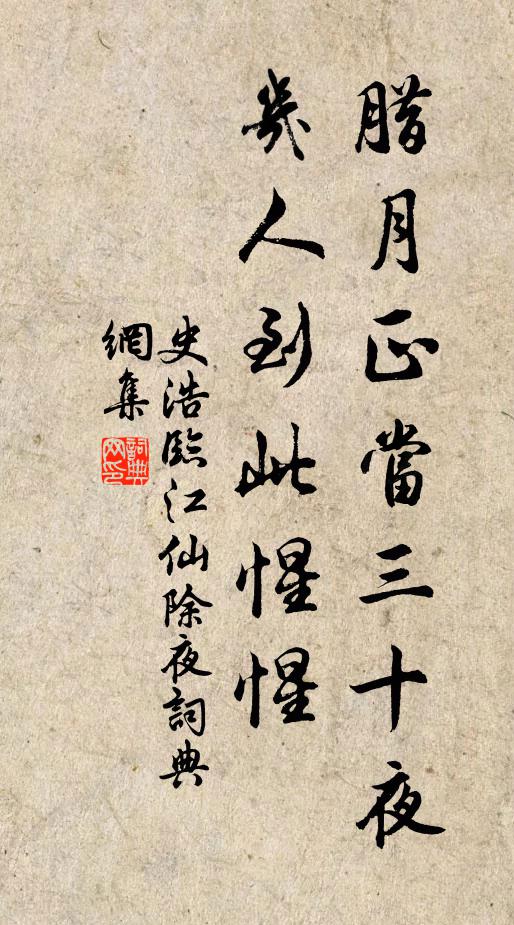 腊月正當三十夜
幾人到此惺惺
史浩臨江仙除夜詞典
網集
詞典網印